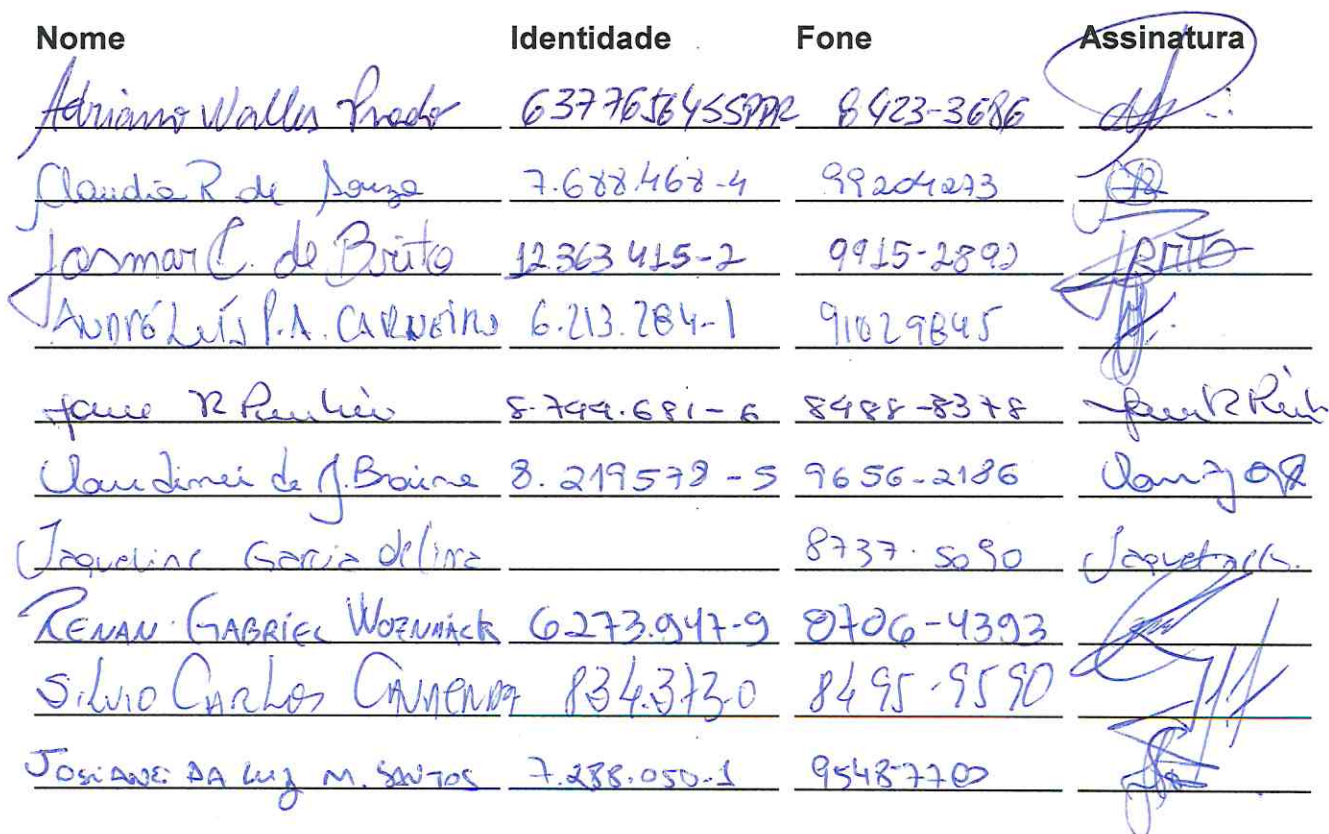 Nome Identidade Fone Assinatura
Adriano Walles Prado 637765645SPPR 8423-3686
Claudia R de Souza 7.688.468-4 99204273
Josmar C. de Brito 12.363 415-2 9915-2892 BRITO
ANDRÉ LUÍS P.A. CARNEIRO 6.213.284-1 91029845
8.799.681-6 8488-8378
Claudinei de J. 8.219578-5 9656-2186
Jaqueline Garcia de Lima 8737.5090
RENAN GABRIEL WOZNIACK 6273.947-9 8706-4393
SILVIO CARLOS 834.373-0 8495-9590
JOSIANE DA LUZ M. SANTOS 7.288.050-1 95487700